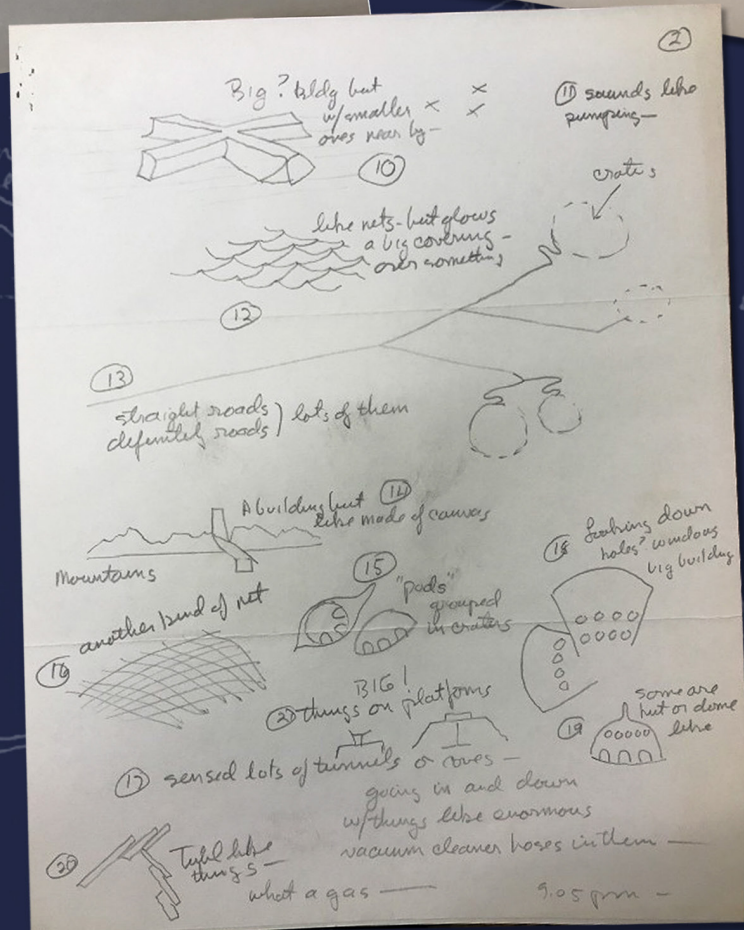 2
Big? bldg but
w/smaller
ones near by —
x x x
10
11 sounds like
pumping —
craters
like nets - but glows
a big covering —
over something
12
13
straight roads
definitely roads ) lots of them
A building but 14
like made of canvas
Mountains
15
"pods"
grouped
in craters
16 another kind of net
18 Looking down
holes? windows
big building
BIG!
things on platforms
19 some are
hut or dome
like
17 sensed lots of tunnels or
going in and down
w/things like enormous
vacuum cleaner hoses in them —
20 like
things —
what a gas —
9.05 pm —